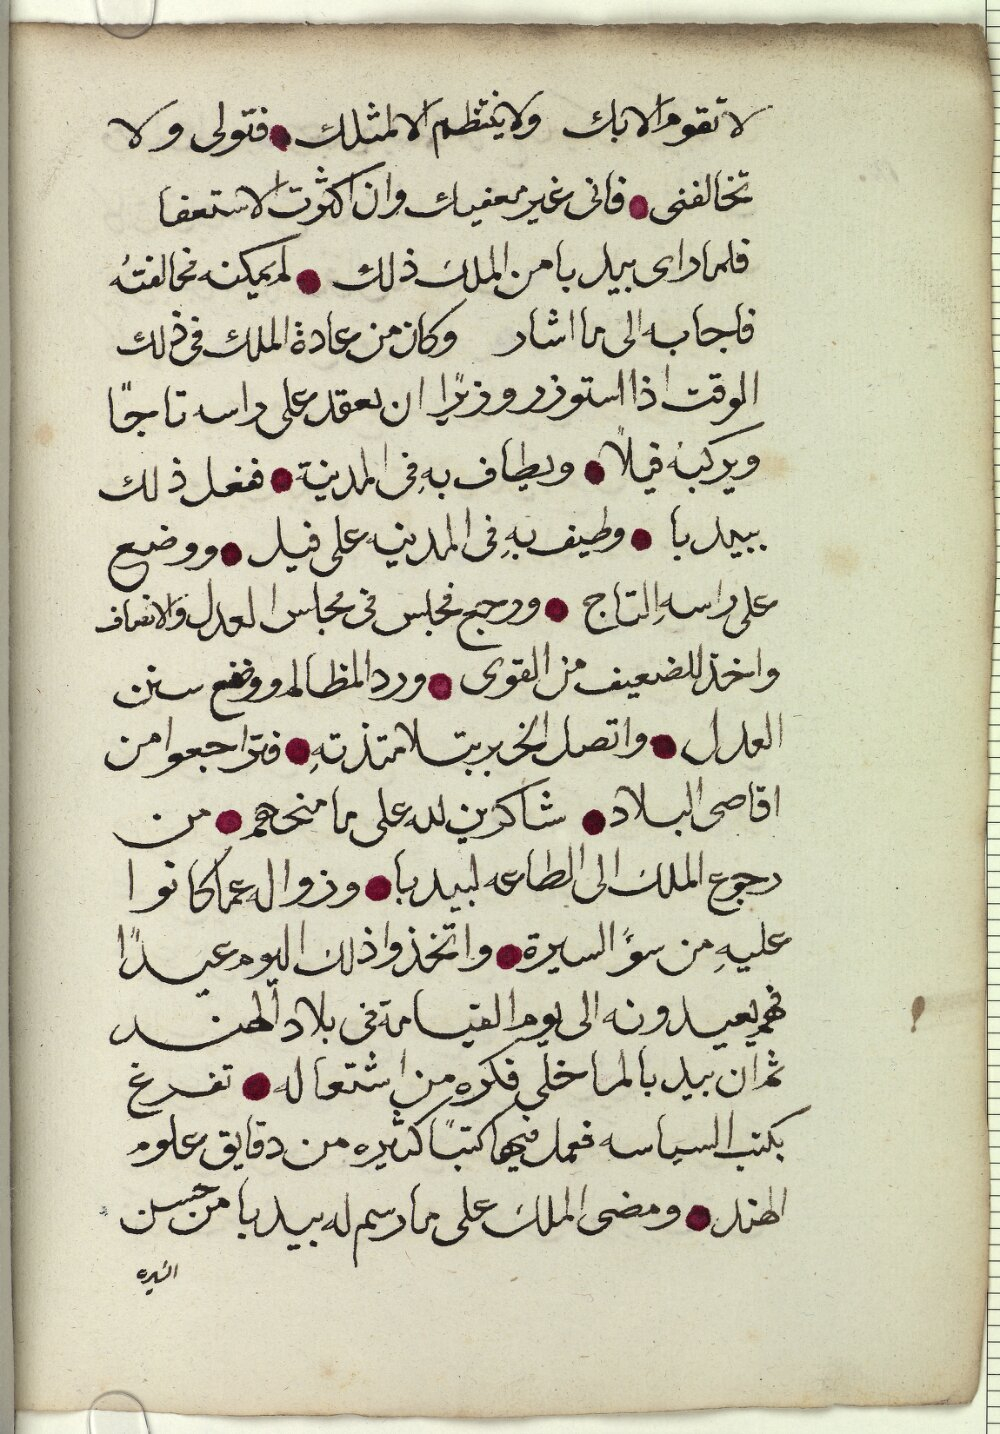 لا تقوم الا بك ولا ينتظم الا لمثلك • فتولى ولا
تخالفنى • فانى غير معفيك وان اكثرت الاستعفا
فلما راى بيدبا من الملك ذلك • لم يمكنه مخالفتهُ
فاجابه الى ما اشار وكان من عادة الملك فى ذلك
الوقت اذا استوزر وزيرًا ان يعقد على راسه تاجًا
ويركبهُ فيلاً • ويطاف بهِ فى المدينة • ففعل ذلك
ببيدبا • وطيف بهِ فى المدينه على فيل • ووضع
على راسهِ التاج • ورجع فجلس فى مجلس العدل والانصاف
واخذ للضعيف من القوى • ورد المظالم ووضع سنن
العدل • واتصل الخبر بتلامتذتهِ • فتراجعوا من
اقاصى البلاد • شاكرين لله على ما منحهم • من
رجوع الملك الى الطاعه لبيدبا • وزواله عما كانوا
عليهِ من سوً السيرة • واتخذوا ذلك اليوم عيدًا
فهم يعيدونه الى يوم القيامة فى بلاد الهند
ثم ان بيدبا لما خلى فكره من اشتعاله • تفرغ
بكتب السياسه فعمل فيها كتبًا كثيره من دقايق علوم
الهند • ومضى الملك على ما رسم له بيدبا من حسن
السيره